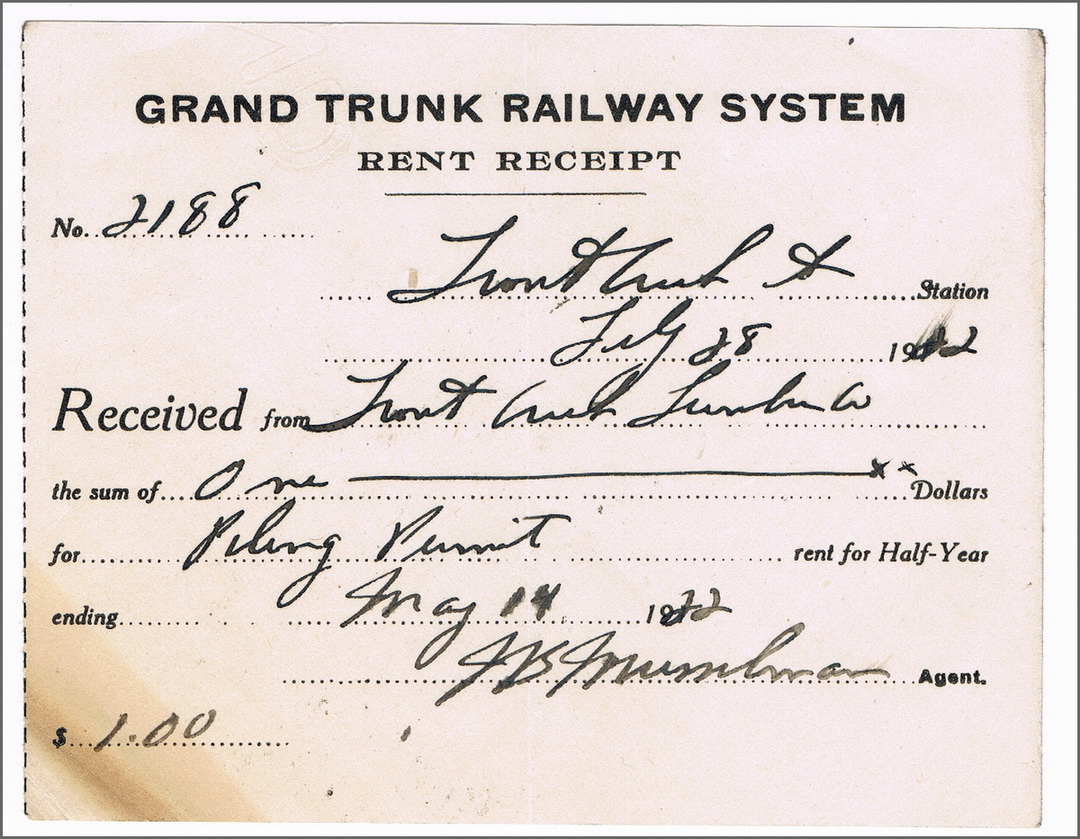 GRAND TRUNK RAILWAY SYSTEM
RENT RECEIPT
No. 2188
Trout Creek St Station
July 28 1922
Received from Trout Creek Lumber Co
the sum of One xx Dollars
for Piling Permit rent for Half-Year
ending May 14 1922
Agent.
$ 1.00